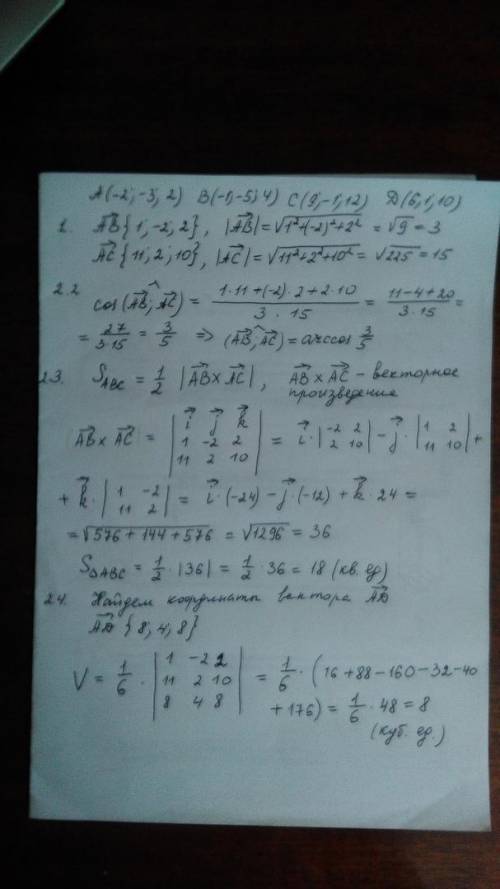 A(-2; -3; 2) B(-1; -5; 4) C(9; -1; 12) D(6; 1; 10)
1. AB{1; -2; 2}, |AB| = √1²+(-2)²+2² = √9 = 3
AC{11; 2; 10}, |AC| = √11²+2²+10² = √225 = 15
2.2 cos(AB,^AC) = 1·11+(-2)·2+2·10 / 3·15 = 11-4+20 / 3·15 =
= 27/3·15 = 3/5 ⇒ (AB,^AC) = arccos 3/5
23. S ABC = 1/2 |AB×AC|, AB×AC - векторное
произведение
|AB×AC| = |i j k; 1 -2 2; 11 2 10| = i·|-2 2; 2 10| - j·|1 2; 11 10| +
+ k·|1 -2; 11 2| = i·(-24) - j·(-12) + k·24 =
= √576+144+576 = √1296 = 36
S ΔABC = 1/2·|36| = 1/2·36 = 18 (кв. ед)
24. Найдем координаты вектора AD
AD{8; 4; 8}
V = 1/6·|1 -2 2; 11 2 10; 8 4 8| = 1/6·(16+88-160-32-40
+176) = 1/6·48 = 8
(куб. ед.)